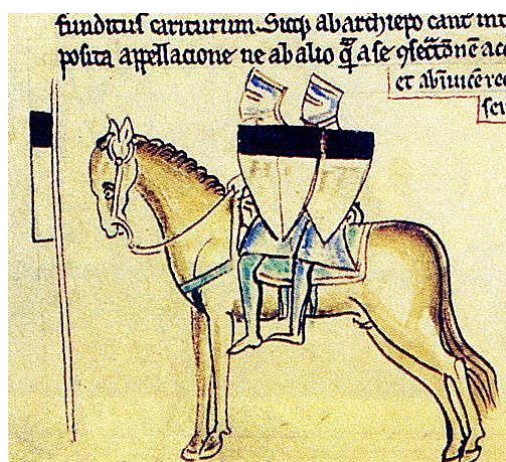 funditus cariturum. Sicq; ab archiepo cant int
posita appellacione ne ab alio q̃ a se ꝯsec̃tonẽ acc
et ab ĩuicẽ rec
seu